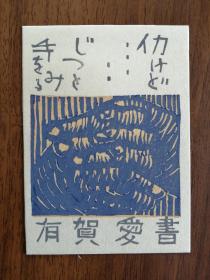 仂けど
……
じつと
手をみる
有賀愛書